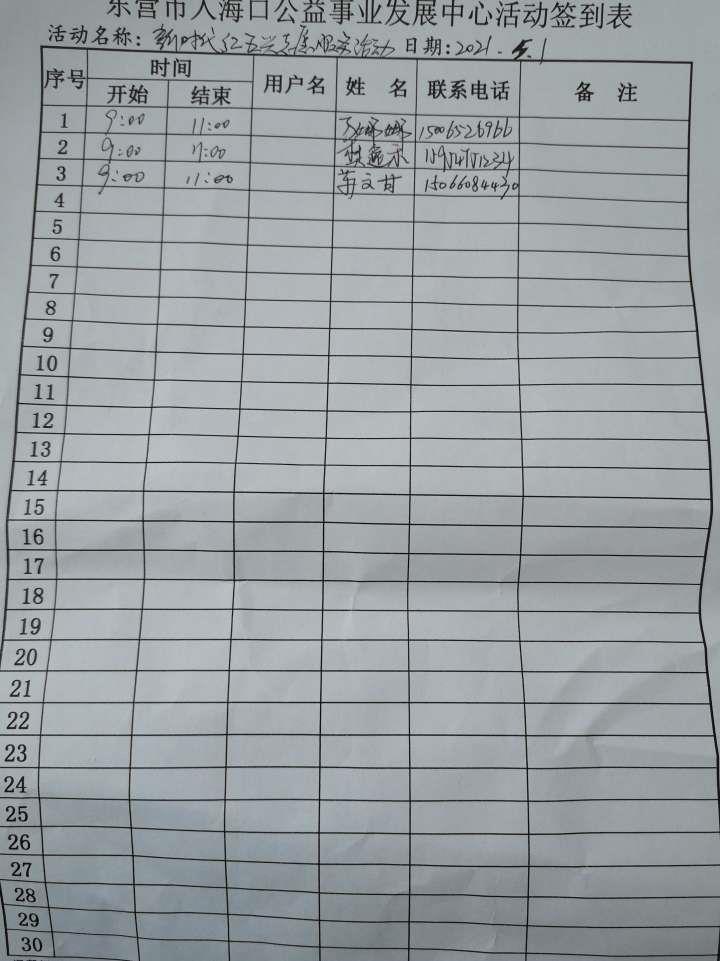 东营市入海口公益事业发展中心活动签到表
活动名称：新时代 服务活动 日期：2021.5.1
序号 时间 用户名 姓 名 联系电话 备 注
开始 结束
1 9:00 11:00 15065526966
2 9:00 11:00
3 9:00 11:00 文甘 15066084430
4
5
6
7
8
9
10
11
12
13
14
15
16
17
18
19
20
21
22
23
24
25
26
27
28
29
30